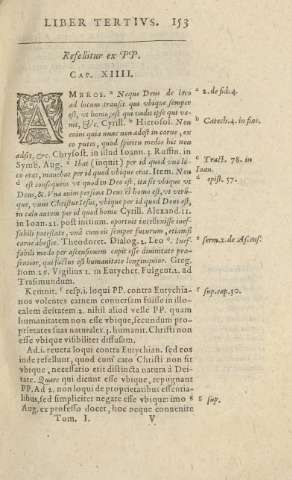 LIBER TERTIVS. 153
Refellitur ex PP.
CAP. XIIII.
AMBROS. ª Neque Deus de loco
ad locum transit qui vbique semper
est, vt homo post que vadit ipse qui ve-
nit, &c. Cyrill. ᵇ Hierosol. Non
enim quia nunc non adest in carne, ex
eo putes, quod spiritu medio hic non
adsit, &c. Chrysost. in illud Ioann. 3. Ruffin. in
Symb. Aug. ᶜ that (inquit) per id quod
erat, manebat per id quod vbique erat. Item. Non
est consequens vt quod in Deo est, ita sit vbique vt
Deus, & Vna enim persona Deus & homo est, vt
que, vnus Christus Iesus, vbique per id quod Deus est,
in cælo autem per id quod homo Cyrill. Alexand. 11.
in Ioan. 21. post initium.
futurum, etiamsi
carne abesset. Theodoret. Dialog. 2. Leo ᵉ Inef-
fabili modo per ascensionem cœpit esse diuinitate præ-
sentior, qui factus est humanitate longinquior. Greg.
hom 21. Vigilius 1. in Eutychet. Fulgent. 2. ad
Trasimundum.
Kemnit. ᶠ resp. 1. loqui PP. contra Eutychia-
nos volentes carnem conuersam fuisse in illo-
calem deitatem 2. nihil aliud velle PP. quam
humanitatem non esse vbique, secundum pro-
prietates suas naturales. 3. humanit. Christi non
esse vbique visibiliter diffusam.
Ad. 1. reuera loqui contra Eutychian. sed eos
inde refellunt, quod cum caro Christi non sit
vbique, necessario erit distincta natura à Dei-
tate. Quare qui dicunt esse vbique, repugnant
PP. Ad 2. non loqui de proprietatibus essentia-
libus, sed simpliciter negare esse vbique: imo ᵍ
Aug. ex professo docet, hoc neque conuenire
Tom. I. V
ª 2. de fid. 4.
ᵇ Catech. 4. in fin.
ᶜ Tract. 78. in
Ioan.
ᵈ epist. 57.
ᵉ serm. 2. de Ascens.
ᶠ sup. cap. 30.
ᵍ sup.